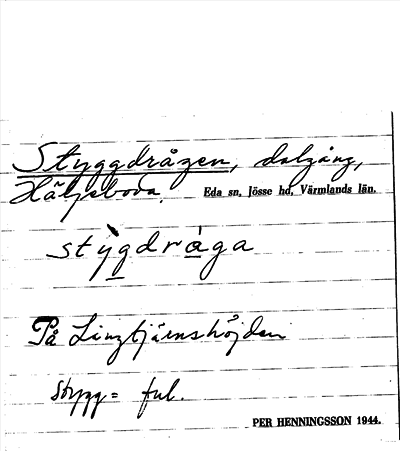 Styggdrågen, dalgång,
Häljeboda. Eda sn, Jösse hd, Värmlands län.
stỳgdråga
På Lingtjärnshöjden
Stygg = ful.
PER HENNINGSSON 1944.